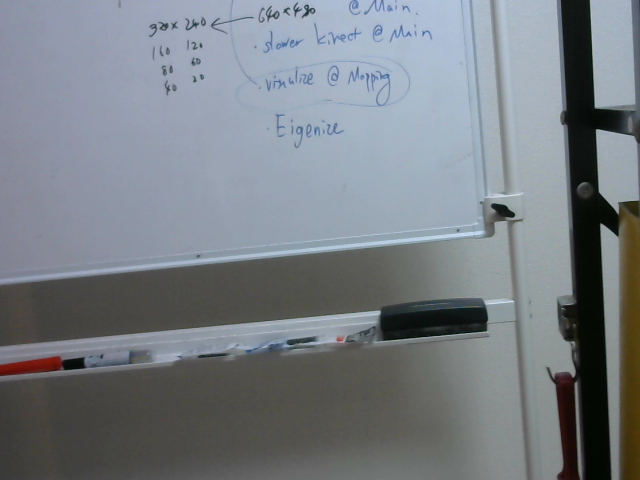 320 × 240 ← 640 × 480 @ Main.
160 120
80 60
40 30
· slower kinect @ Main
· visualize @ Mapping
· Eigenize